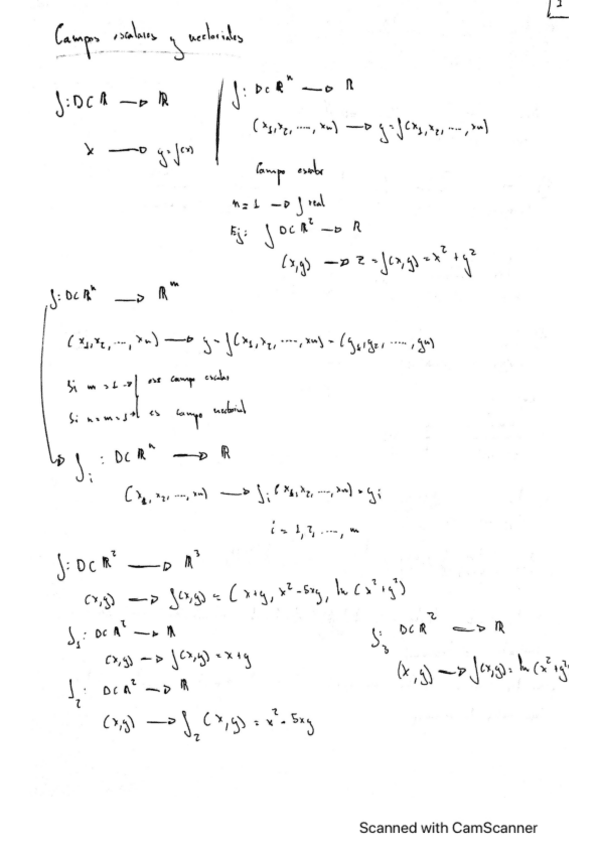 1
Campos escalares y vectoriales
f: D ⊂ R → R
x → y = f(x)
f: D ⊂ Rⁿ → R
(x₁, x₂, ...., xₙ) → y = f(x₁, x₂, ...., xₙ)
Campo escalar
n = 1 → f real
Ej: f D ⊂ R² → R
(x,y) → z = f(x,y) = x² + y²
f: D ⊂ Rⁿ → Rᵐ
(x₁, x₂, ..., xₙ) → y = f(x₁, x₂, ..., xₙ) = (y₁, y₂, ....., yₙ)
Si m = 1 → campo escalar
Si n = m = es campo vectorial
fᵢ : D ⊂ Rⁿ → R
(x₁, x₂, ..., xₙ) → fᵢ(x₁, x₂, ..., xₙ) = yᵢ
i = 1, 2, ...., m
f: D ⊂ R² → R³
(x,y) → f(x,y) = (x+y, x² - 5xy, ln(x² + y²))
f₁: D ⊂ R² → R
(x,y) → f(x,y) = x + y
f₂: D ⊂ R² → R
(x,y) → f₂(x,y) = x² - 5xy
f₃: D ⊂ R² → R
(x,y) → f(x,y) = ln(x² + y²
Scanned with CamScanner